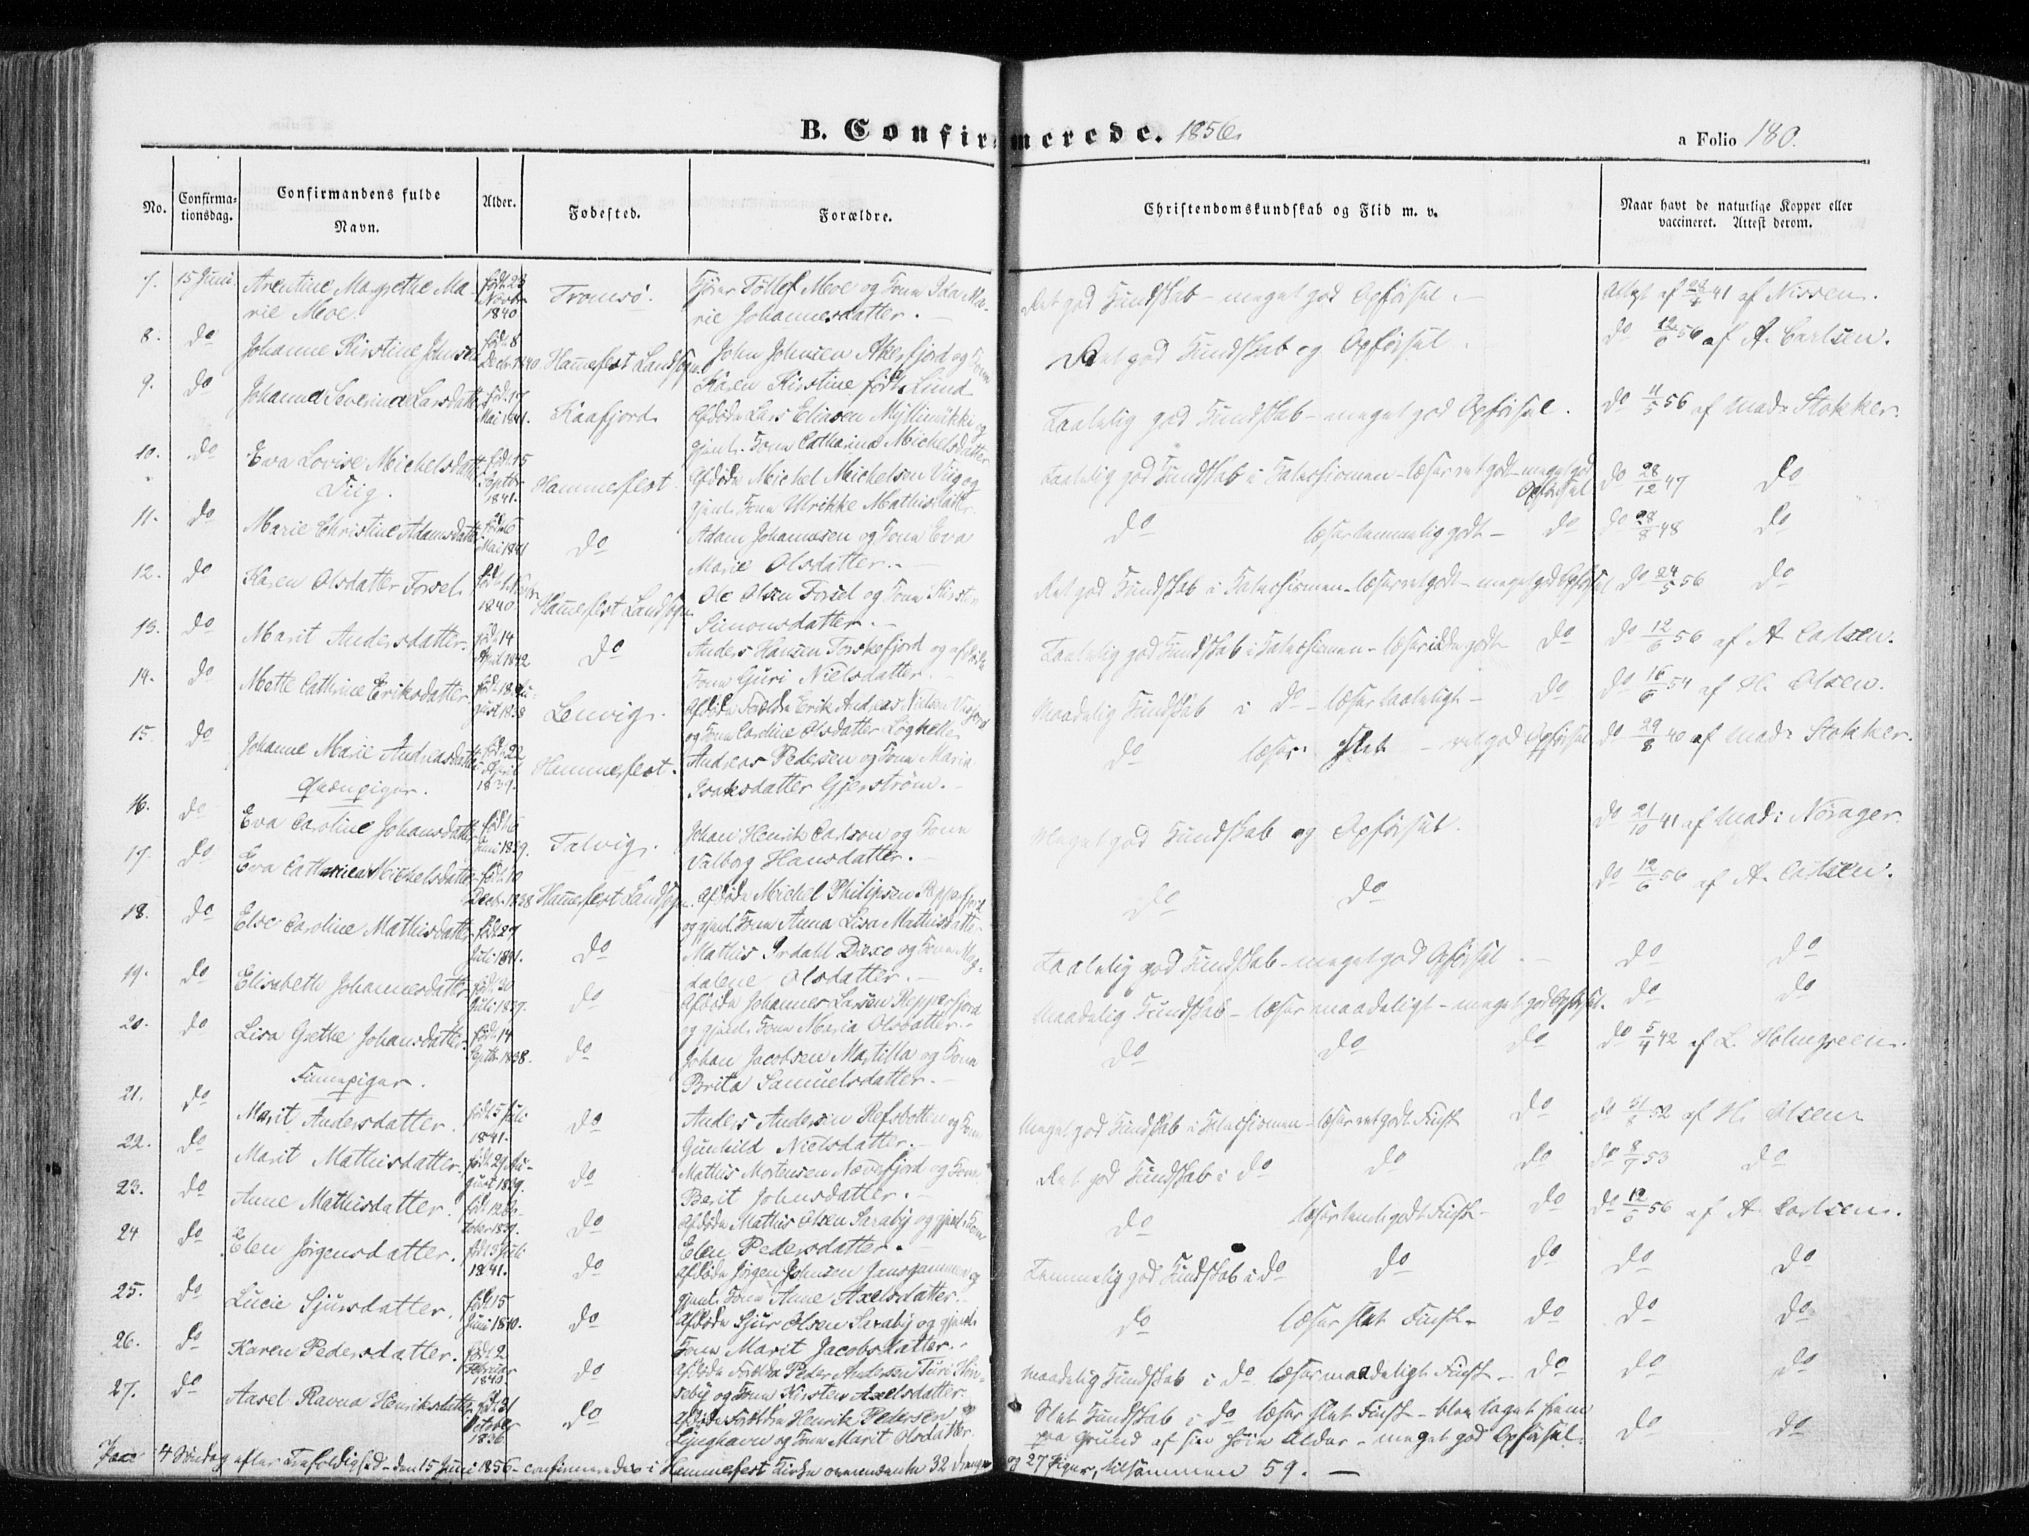 B. Confirmerede. 1856.
a Folio 180.
No.
Confirmationsdag.
Confirmandens fulde Navn.
Alder.
Fødested.
Forældre.
Christendomskundskab og Flid m. v.
Naar havt de naturlige Kopper eller vaccineret. Attest derom.
7. 15 Juni. Arentine Magrethe Ma- født 23 Tromsø. Tollef Moe og Kone Ida Ma- Ret god Kundskab - meget god Opførsel. Attest af 41 af Nissen.
rie Moe Novbr 1840 rie Johannesdatter.
8. do Johanne Kirstine Johnsen født 8 Decbr 1840. Hammerfest Landsogn John Johnsen Akerfjord og Kone Ret god Kundskab og Opførsel. do 12/6 56 af A. Carlsen.
Karen Kirstine født Lund
9. do Johanna Severine Larsdatter født 17 Mai 1841. Kaafjord Afdøde Lars Eliasen Myllimükka og Taalelig god Kundskab - meget god Opførsel. do 11/5 56 af Mad: Stokker.
gjenl. Kone Catharina Michelsdatter
10. do Eva Lovise Michelsdatter født 15 Septbr 1841. Hammerfest. Afdøde Michel Michelsen Viig og Taalelig god Kundskab i Katechismen - læser ret godt - meget god Opførsel do 28/12 47 do
Viig. gjenl. Kone Ulrikke Mathisdatter
11. do Marie Christine Adamsdatter Mai 1841 do Adam Johannesen og Kone Eva do læser temmelig godt - do do 28/8 48 do
Marie Olsdatter.
12. do Karen Olsdatter Forsel. 1840. Hammerfest Landsogn Ole Olsen Forsel og Kone Kirsten Ret god Kundskab i Katechismen - læser ret godt - meget god Opførsel do 24/5 56 do
Simonsdatter.
13. do Marit Andersdatter. født 14 April 1842 do Anders Hansen Torskefjord og afdøde Taalelig god Kundskab i Katechismen - læser godt do do 12/6 56 af A Carlsen.
Kone Guri Nielsdatter.
14. do Mette Cathrine Eriksdatter født 18 Au- gust 1838 Lenvig. Afdøde Forældre Erik Andreas Nielsen Maadelig Kundskab i do - læser taaleligt - do do 16/6 54 af H. Olsen.
og Kone Caroline Olsdatter
15. do Johanne Marie Andreasdatter født 22 April 1839. Hammerfest. Andreas Pedersen og Kone Maria do læser slet - ret god Opførsel do 29/8 40 af Mad: Stokker.
Isaksdatter Gjerstrøm.
Qvænpiger.
16. do Eva Caroline Johansdatter Juni 1839. Talvig. Johan Henrik Carlson og Kone Meget god Kundskab og Opførsel. do 21/10 41 af Mad: Norager.
Valborg Hansdatter.
17. do Eva Cathrine Michelsdatter født 10 Decbr 1838 Hammerfest Landsogn. Afdøde Michel Philipsen Repperfjord do do do 12/6 56 af A. Carlsen.
og gjenl. Kone Anna Lisa Mathisdatter
18. do Else Caroline Mathisdatter født 27 Juli 1841. do Mathis Irdall og Kone Mag- Taalelig god Kundskab - meget god Opførsel. do do
dalene Olsdatter.
19. do Elisabeth Johannesdatter født 30 Juli 1839. do Afdøde Johannes Larsen Repperfjord Maadelig Kundskab - læser maadeligt - meget god Opførsel. do do
og gjenl. Kone Maria Olsdatter.
20. do Lisa Grethe Johansdatter. født 14 Septbr 1838. do Johan Jacobsen Martilla og Kone do do do do 5/4 42 af L. Holmgreen.
Brita Samuelsdatter.
Finnepiger.
21. do Marit Andersdatter. født 5 Juli 1841. do Anders Andersen Refsbotten og Kone Meget god Kundskab i Katechismen - læser ret godt Finsk do do 52 af H. Olsen
Gunhild Nielsdatter.
22. do Marit Mathisdatter. født 29 Au- gust 1839. do Mathis Mortensen Nævefjord og Kone Ret god Kundskab i do do do do 8/7 53 do
Berit Johnsdatter.
23. do Anne Mathisdatter. født 12 Oc- tober 1839. do Afdøde Mathis Olsen Saraby og gjenl. Kone do læser godt Finsk - do do 12/6 56 af A. Carlsen.
Elen Pedersdatter.
24 do Elen Jørgensdatter. Juli 1841. do Afdøde Jørgen Johnsen Jansgammen og Temmelig god Kundskab i do do do do do
gjenl. Kone Anne Axelsdatter.
25. do Lucie Sjursdatter. født 15 Juni 1840. do Afdøde Sjur Olsen Saraby og gjenl. do læser slet Finsk - do do do
Kone Marit Jacobsdatter.
26. do Karen Pedersdatter. født 2 Februar 1840 do Afdøde Forældre Peder Andersen Maadelig Kundskab i do læser maadeligt Finsk - do do do
og Kone Kirsten Axelsdatter.
27. do Aasel Ravna Henriksdatter født 21 October 1836 do Afdøde Forældre Henrik Pedersen Slet Kundskab i do læser slet Finsk - blev taget frem do do
Lynghavn og Kone Marit Olsdatter. paa Grund af sin høie Alder - meget god Opførsel.
4 Søndag efter Trefoldighed - den 15 Juni 1856 - confirmeredes i Hammerfest Kirke ovennævnte 32 Drenge og 27 Piger, tilsammen 59. -